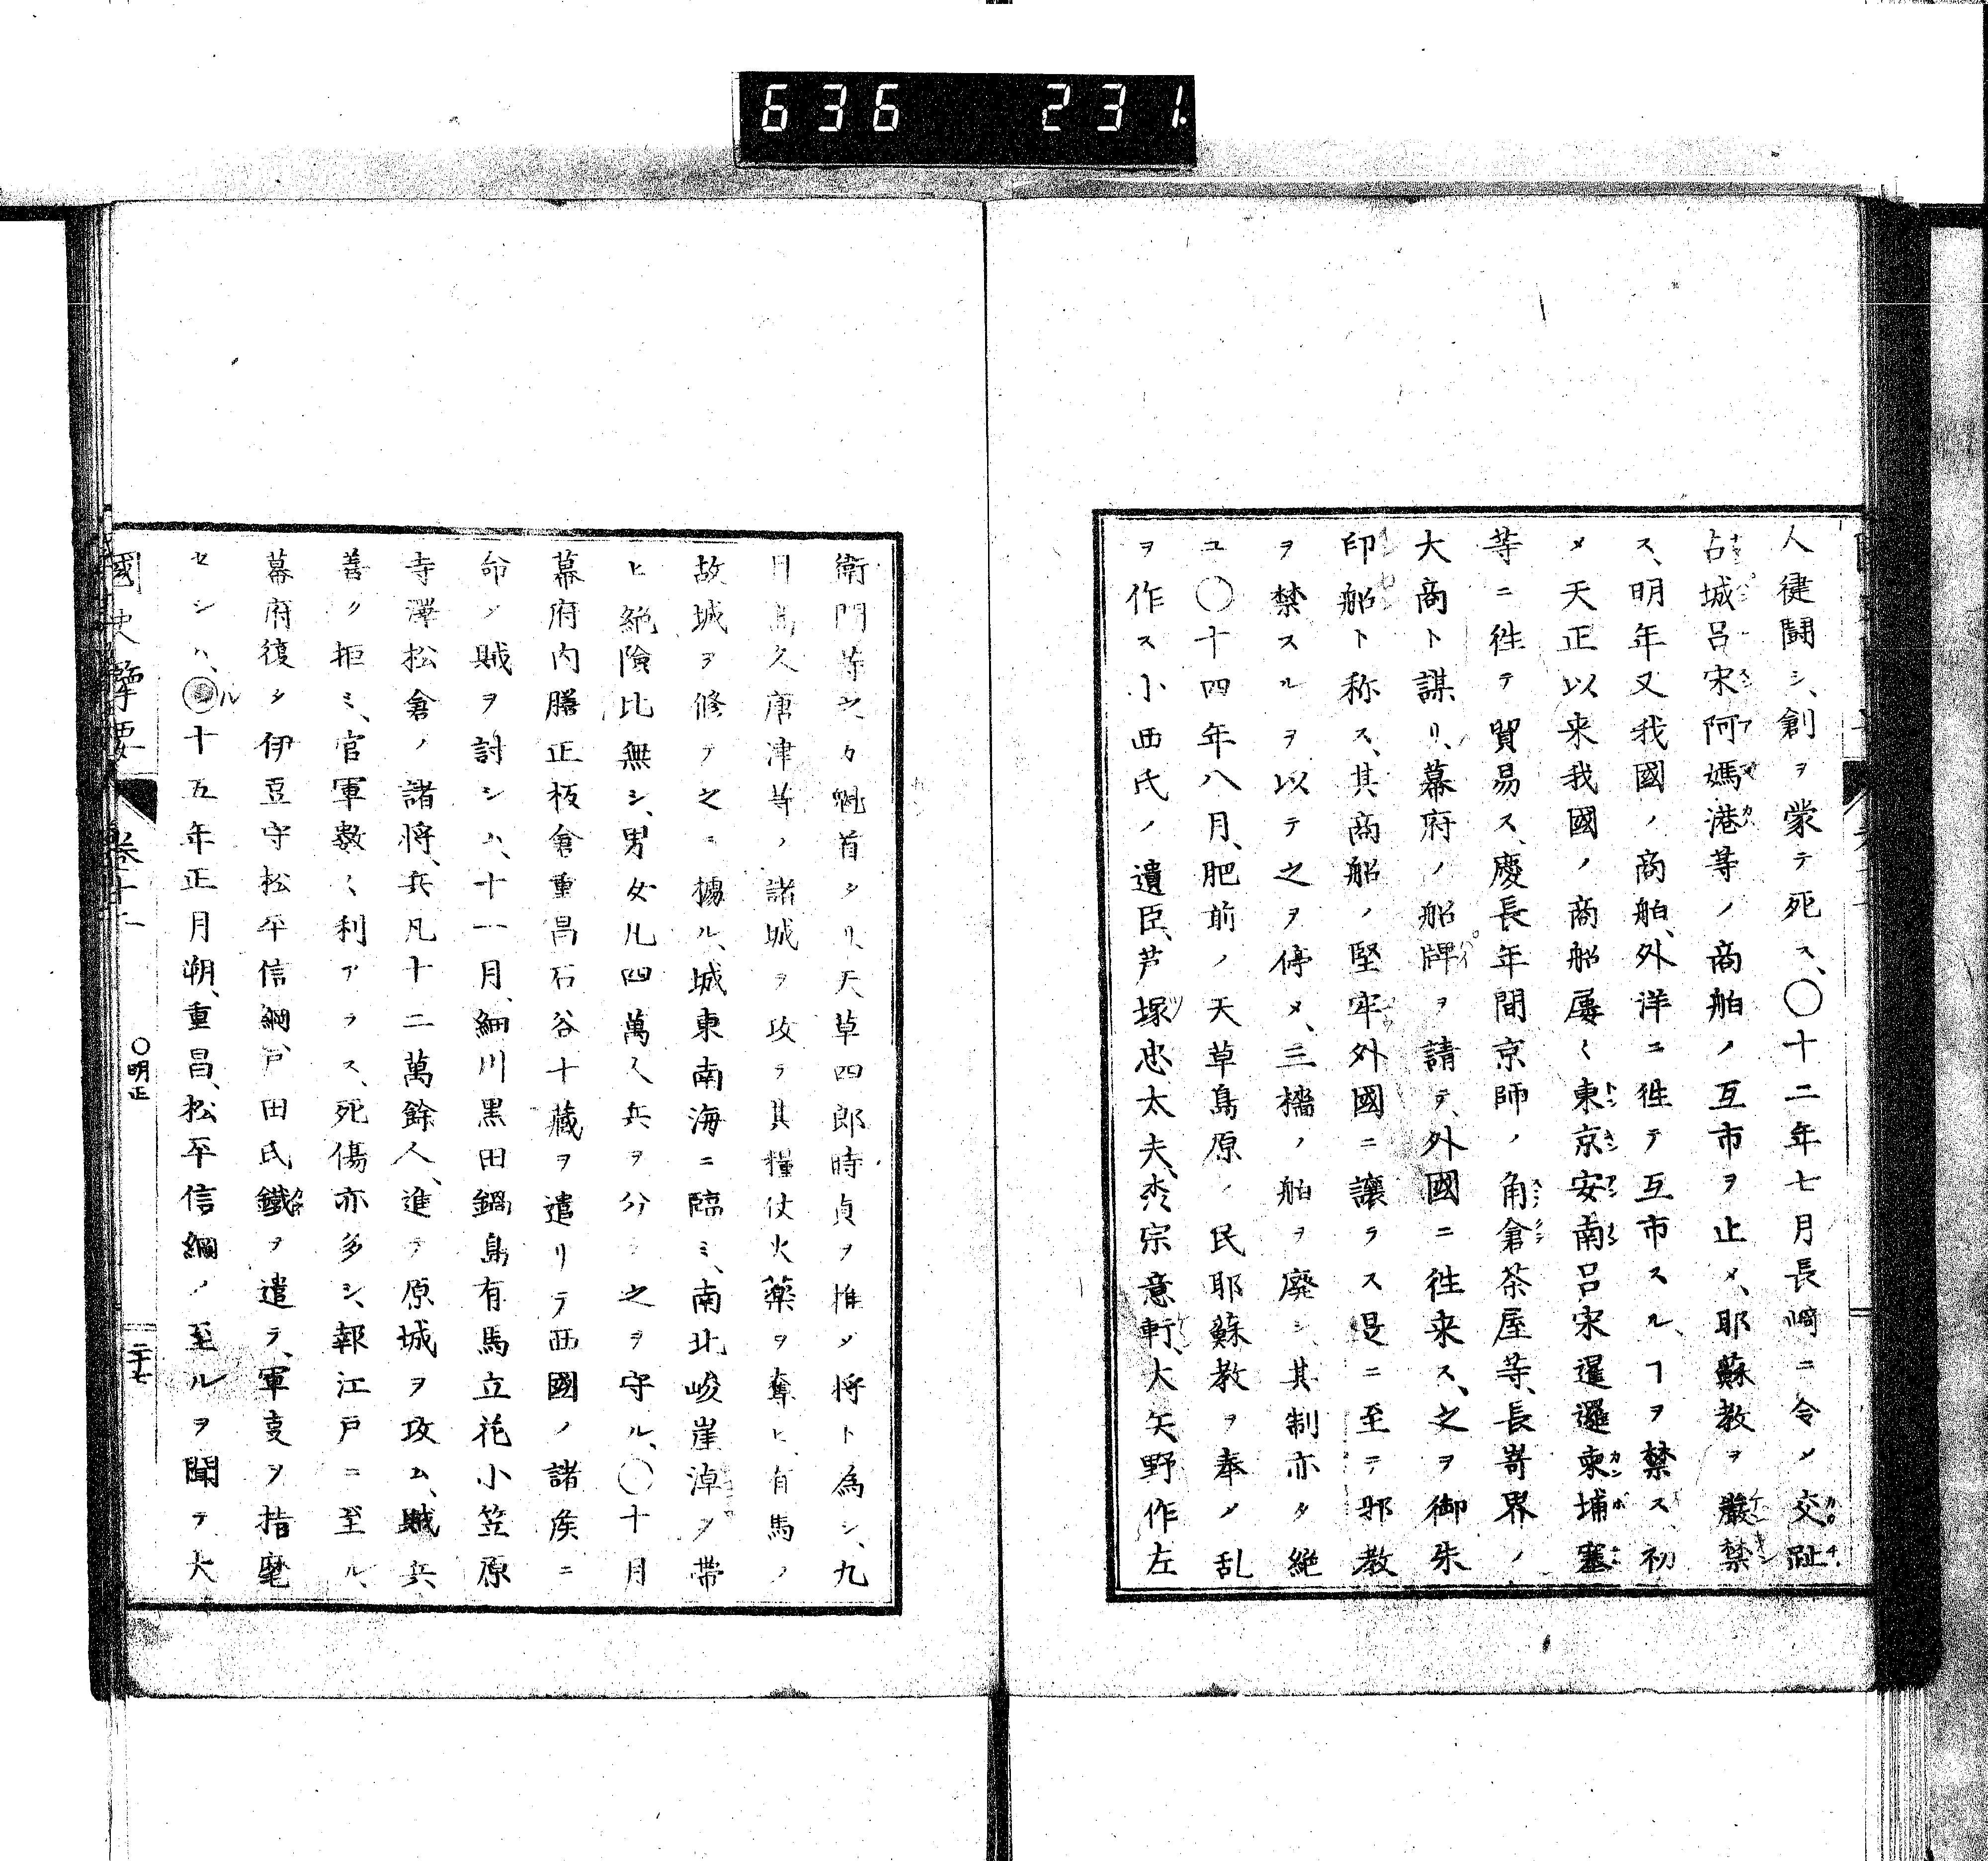 636 231
人健闘シ、創ヲ蒙テ死ス、〇十二年七月長崎ニ令メ交趾
占城呂宋阿媽港等ノ商舶ノ互市ヲ止メ、耶蘇教ヲ嚴禁
ス、明年又我國ノ商舶、外洋ニ徃テ互市スルヿヲ禁ス、初
メ天正以来我國ノ商船屢〱東京安南呂宋暹邏柬埔塞
等ニ徃テ貿易ス、慶長年間京師ノ角倉茶屋等、長嵜界ノ
大商ト謀リ、幕府ノ船牌ヲ請テ、外國ニ徃来ス、之ヲ御朱
印船ト称ス、其商船ノ堅牢外國ニ讓ラス是ニ至テ邪教
ヲ禁スルヲ以テ之ヲ停メ、三檣ノ舶ヲ廃シ、其制亦タ絶
ユ〇十四年八月、肥前ノ天草島原ノ民耶蘇教ヲ奉メ乱
ヲ作ス小西氏ノ遺臣、芦塚忠太夫、宗意軒、大矢野作左
衛門等之カ魁首タリ、天草四郎時貞ヲ推メ将ト為シ、九
月島久唐津等ノ諸城ヲ攻テ其糧仗火藥ヲ奪ヒ、有馬ノ
故城ヲ修テ之ニ據ル、城東南海ニ臨ミ、南北峻崖淖ヲ帶
ヒ絶險比無シ、男女凡四萬人兵ヲ分テ之ヲ守ル、〇十月
幕府内膳正板倉重昌石谷十藏ヲ遣リテ西國ノ諸侯ニ
命メ賊ヲ討シム、十一月、細川黒田鍋島有馬立花小笠原
寺澤松倉ノ諸将、兵凡十二萬餘人、進テ原城ヲ攻ム、賊兵
善ク拒ミ、官軍數〱利アラス、死傷亦多シ、報江戸ニ至ル、
幕府復タ伊豆守松平信綱、戸田氏鐵ヲ遣テ、軍叓ヲ指麾
セシム、ル十五年正月朔、重昌、松平信綱ノ至ルヲ聞テ大
國史擥要
卷十一
〇明正
二十七